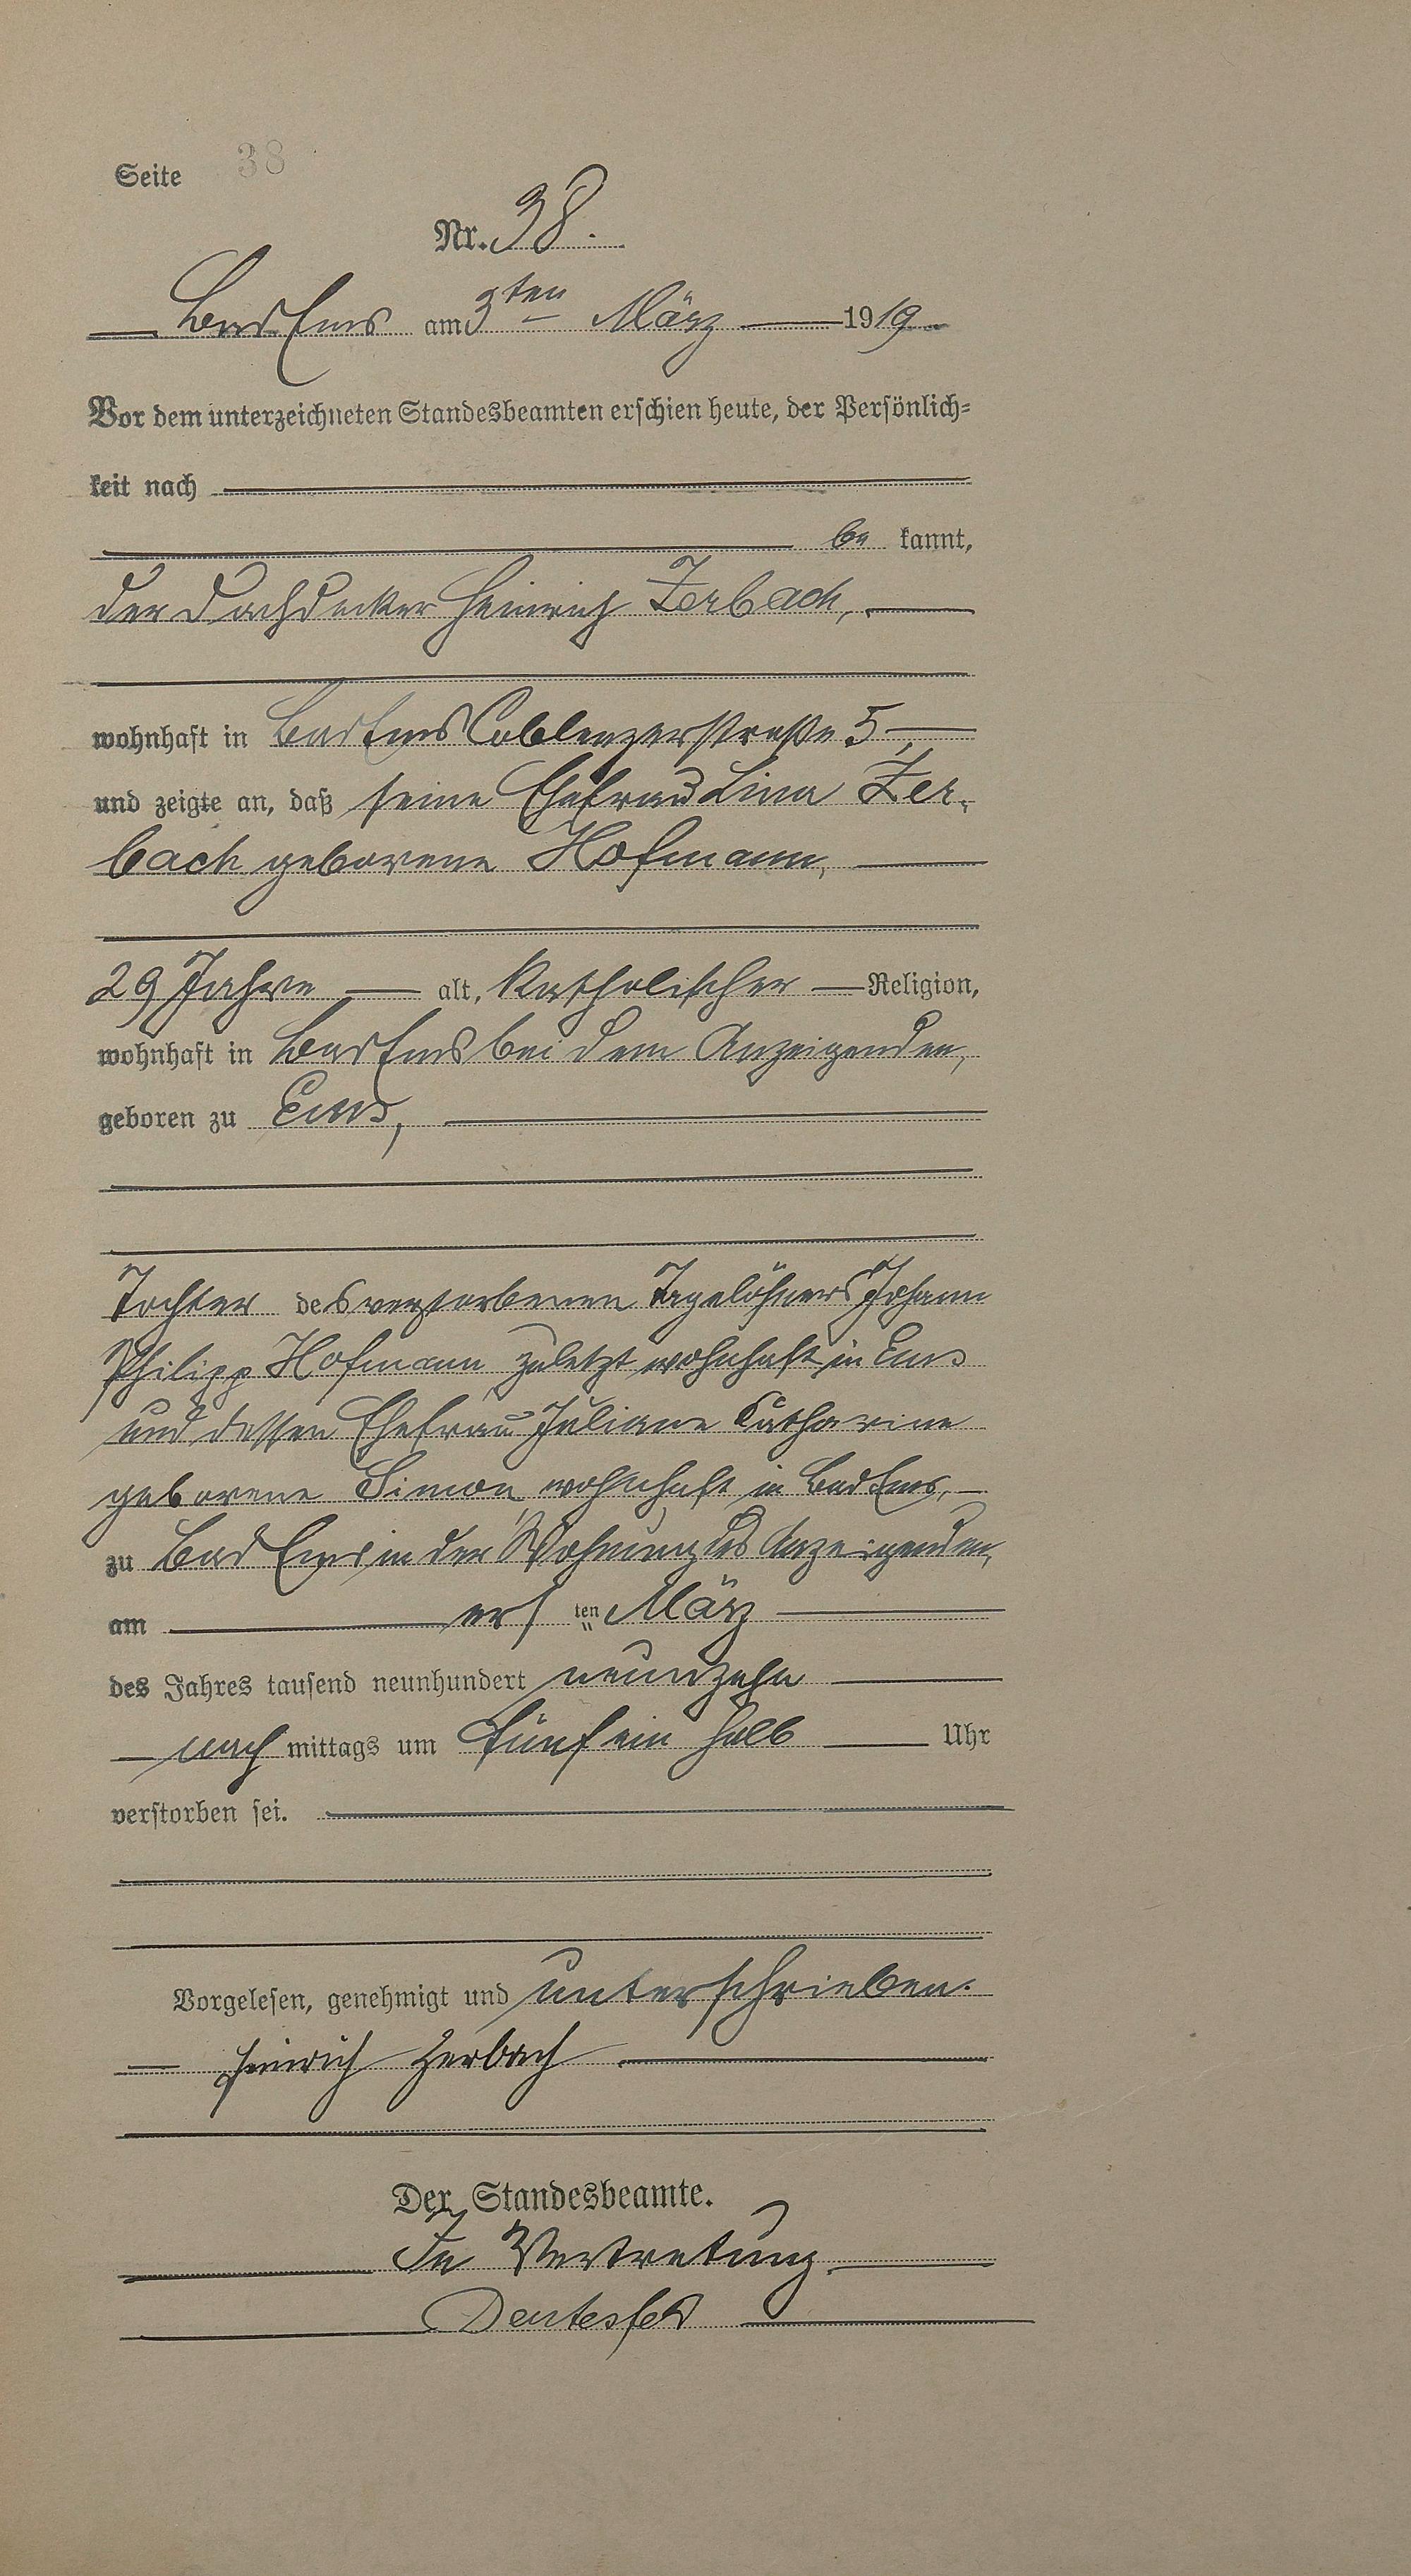 Seite 38
Nr. 38.
Bad Ems am 3ten März 1919
Vor dem unterzeichneten Standesbeamten erschien heute, der Persönlich=
keit nach
be kannt,
der Dachdecker Heinrich Zerbach,
wohnhaft in Bad Ems Coblenzerstraße 5,
und zeigte an, daß seine Ehefrau Lina Zer-
bach geborene Hofmann,
29 Jahre alt, katholischer Religion,
wohnhaft in Bad Ems bei dem Anzeigenden,
geboren zu Ems,
Tochter des verstorbenen Tagelöhners Johann
Philipp Hofmann zuletzt wohnhaft in Ems
und dessen Ehefrau Juliane Catharine
geborene Simon, wohnhaft in Bad Ems,
zu Bad Ems in der Wohnung des Anzeigenden,
am ers ten März
des Jahres tausend neunhundert neunzehn
nach mittags um fünf ein halb Uhr
verstorben sei.
Vorgelesen, genehmigt und unterschrieben.
Heinrich Zerbach
Der Standesbeamte.
In Vertretung.